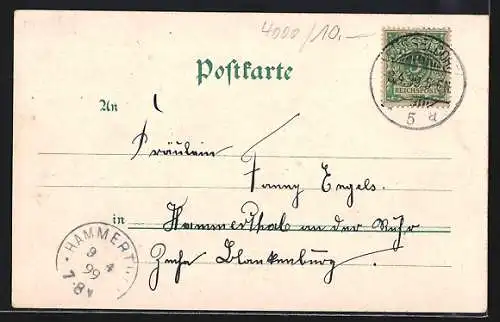 4000/10.-
Postkarte
REICHSPOST
5 d
An
Fräulein
Fanny Engels.
in Hammerthal an der Ruhr
Zeche Blankenburg
HAMMERTH
9 4
99
7-8V